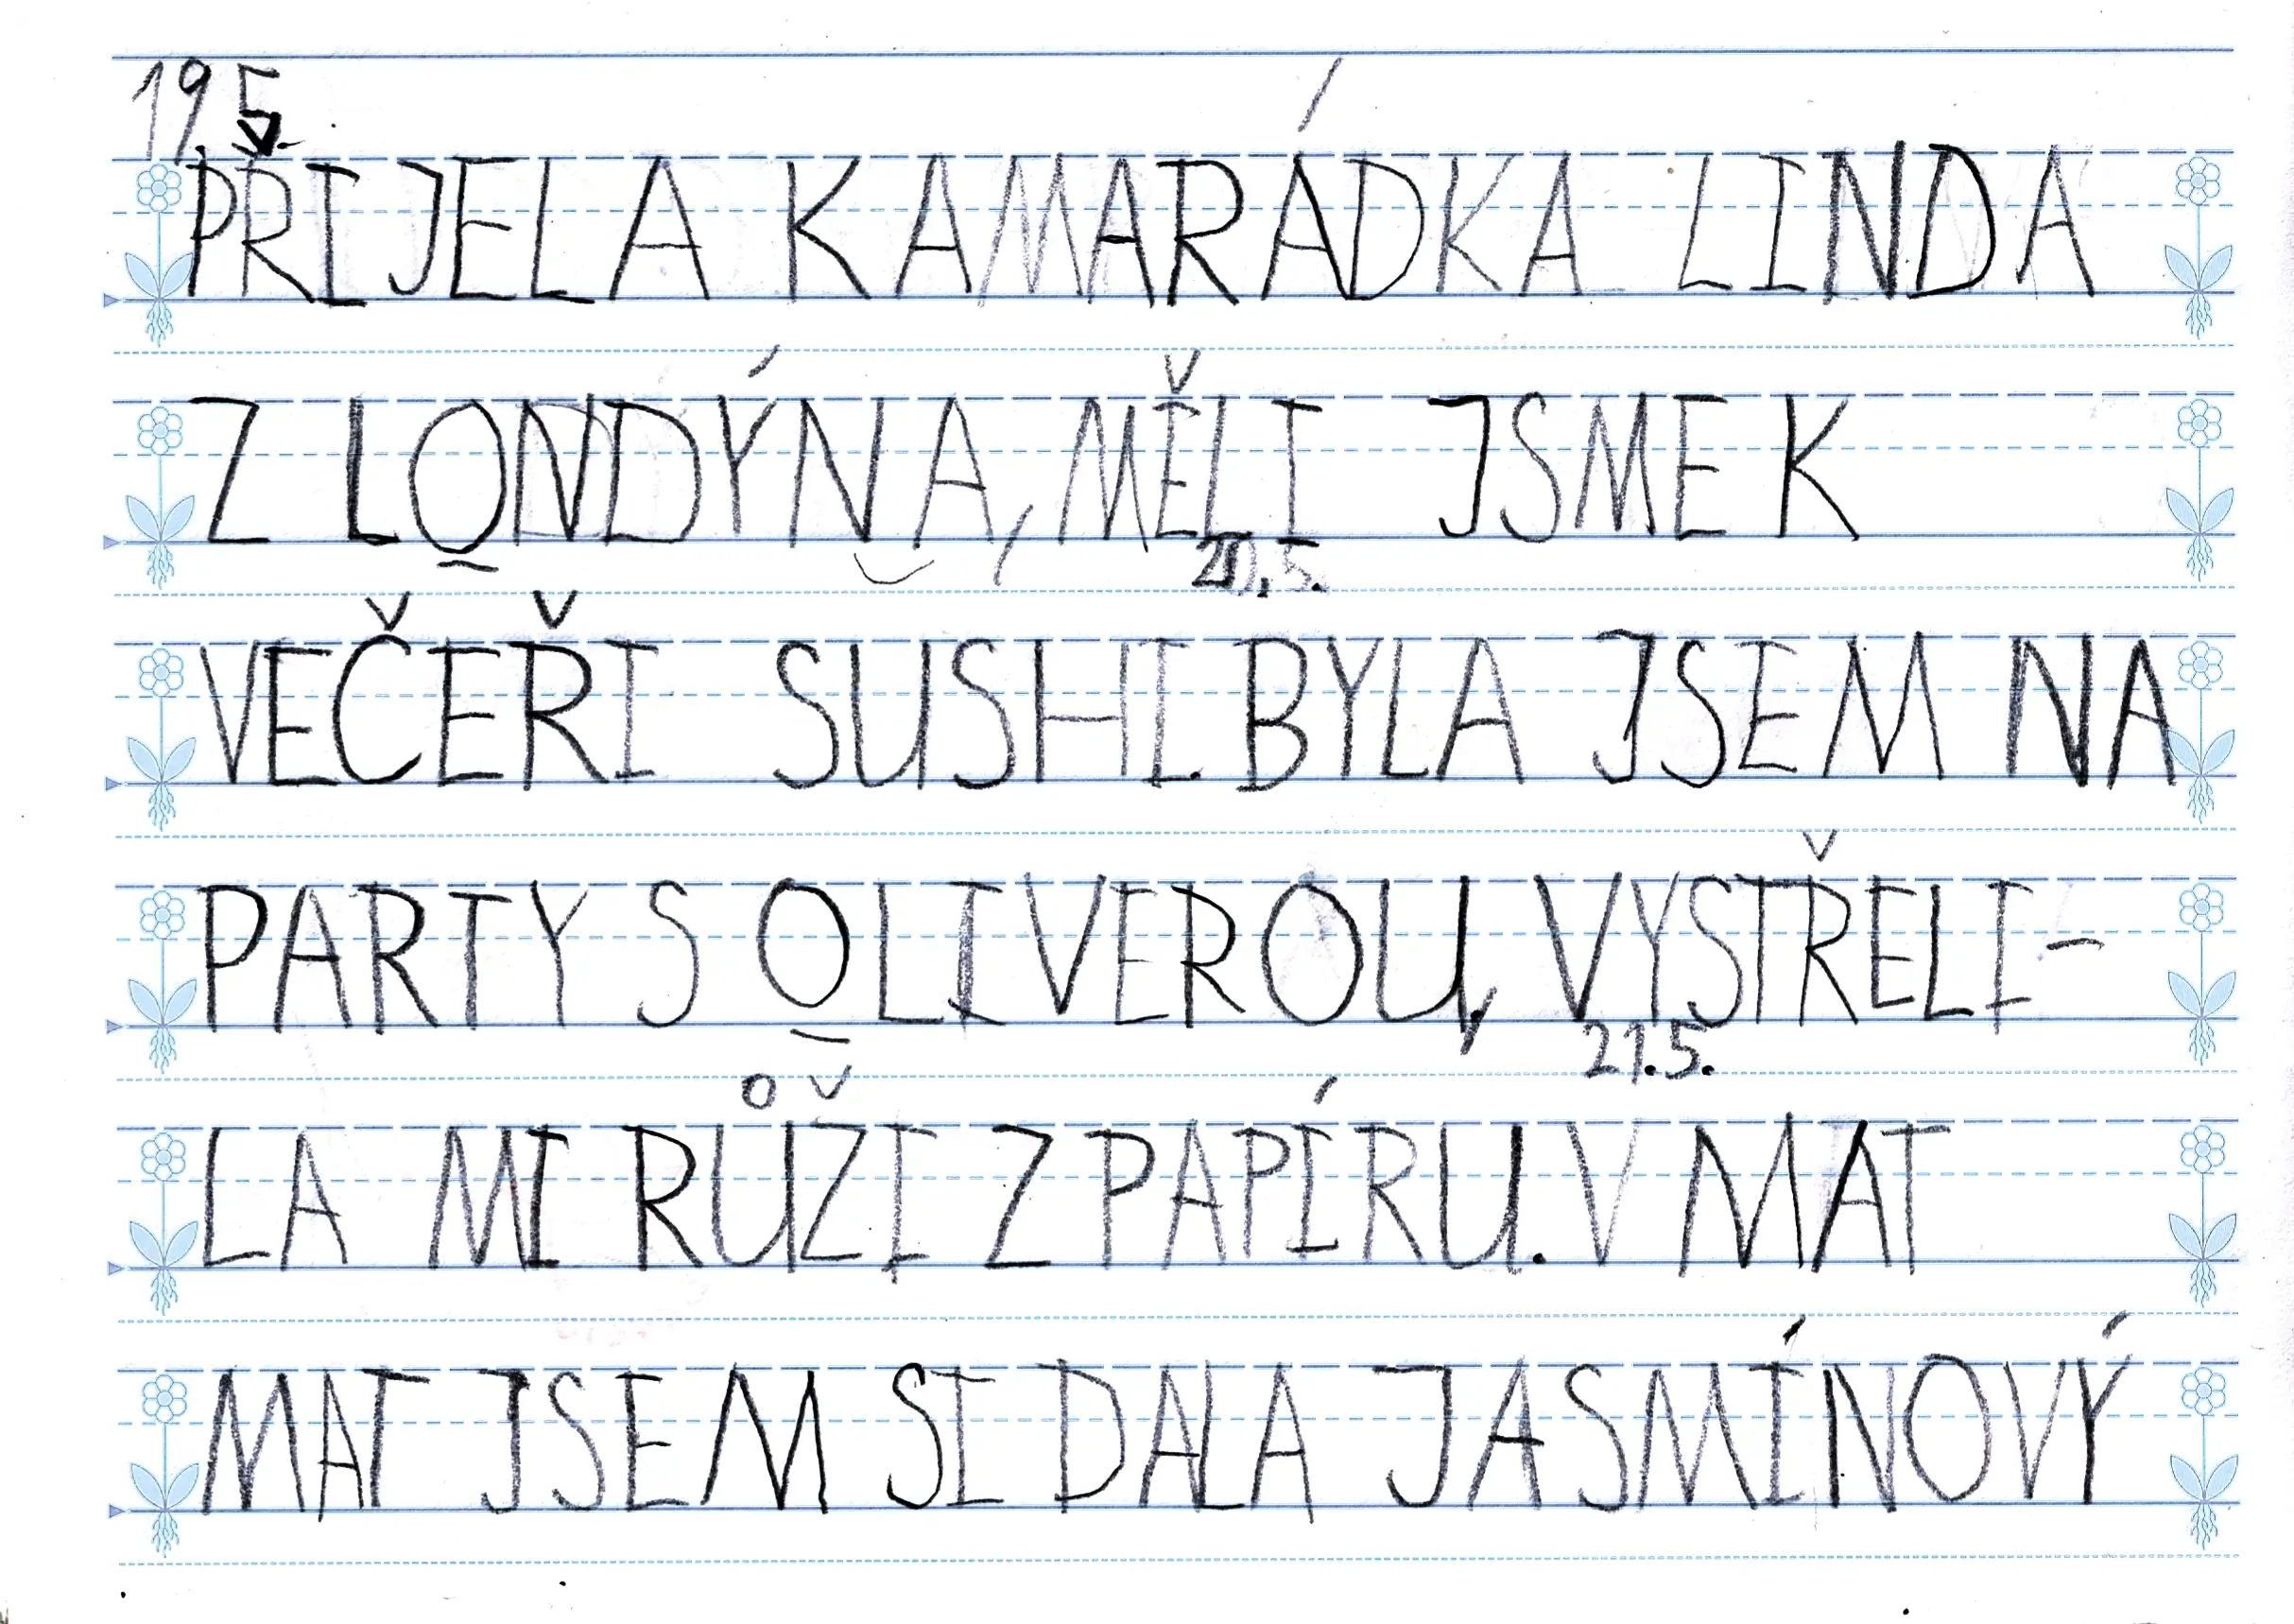 19.5.
PŘIJELA KAMARÁDKA LINDA
Z LONDÝNA, MĚLI JSME K
20.5.
VEČEŘI SUSHI. BYLA JSEM NA
PARTY S OLIVEROU, VYSTŘELI-
21.5.
LA MI RŮŽI Z PAPÍRU. V MAT
MAT JSEM SI DALA JASMÍNOVÝ